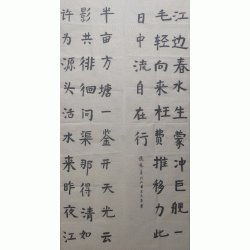 半亩方塘一鉴开天光云
影共徘徊问渠那得清如
许为源头活水来昨夜江
江边春水生蒙冲巨舰一
毛轻向来枉费推移力此
日中流自在行